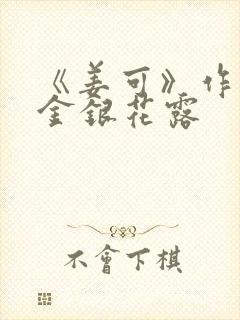 《姜可》作
金銀花露
不會下棋